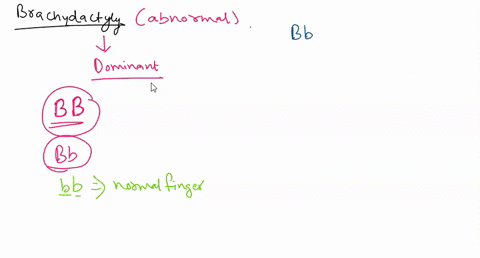 Brachydactyly (abnormal).
Bb
Dominant
BB
Bb
bb ⇒ normal finger